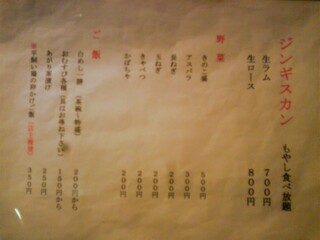 ジンギスカン もやし食べ放題
生ラム 700円
生ロース 800円
野菜
きのこ盛 500円
アスパラ 300円
長ねぎ 200円
玉ねぎ 200円
キャベツ 200円
かぼちゃ 200円
ご飯
白めし一膳 200円から
おむすび各種 (具はお尋ね下さい) 150円から
あがり茶漬け 250円
平飼い鶏の卵かけご飯 350円